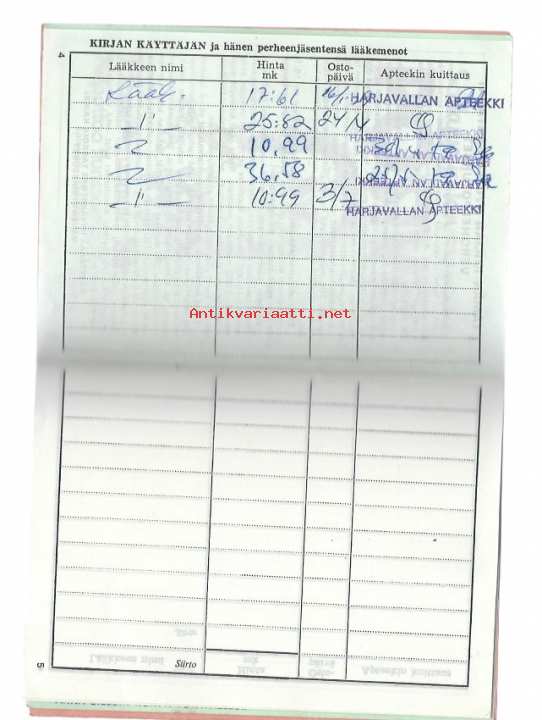 KIRJAN KÄYTTÄJÄN ja hänen perheenjäsentensä lääkemenot
4
Lääkkeen nimi
Hinta mk
Osto-päivä
Apteekin kuittaus
Lääk.
17:61
HARJAVALLAN APTEEKKI
— " —
25:82
24/4
HARJAVALLAN APTEEKKI
10,99
36,58
— " —
10:99
3/7
HARJAVALLAN APTEEKKI
Antikvariaatti.net
5
Siirto